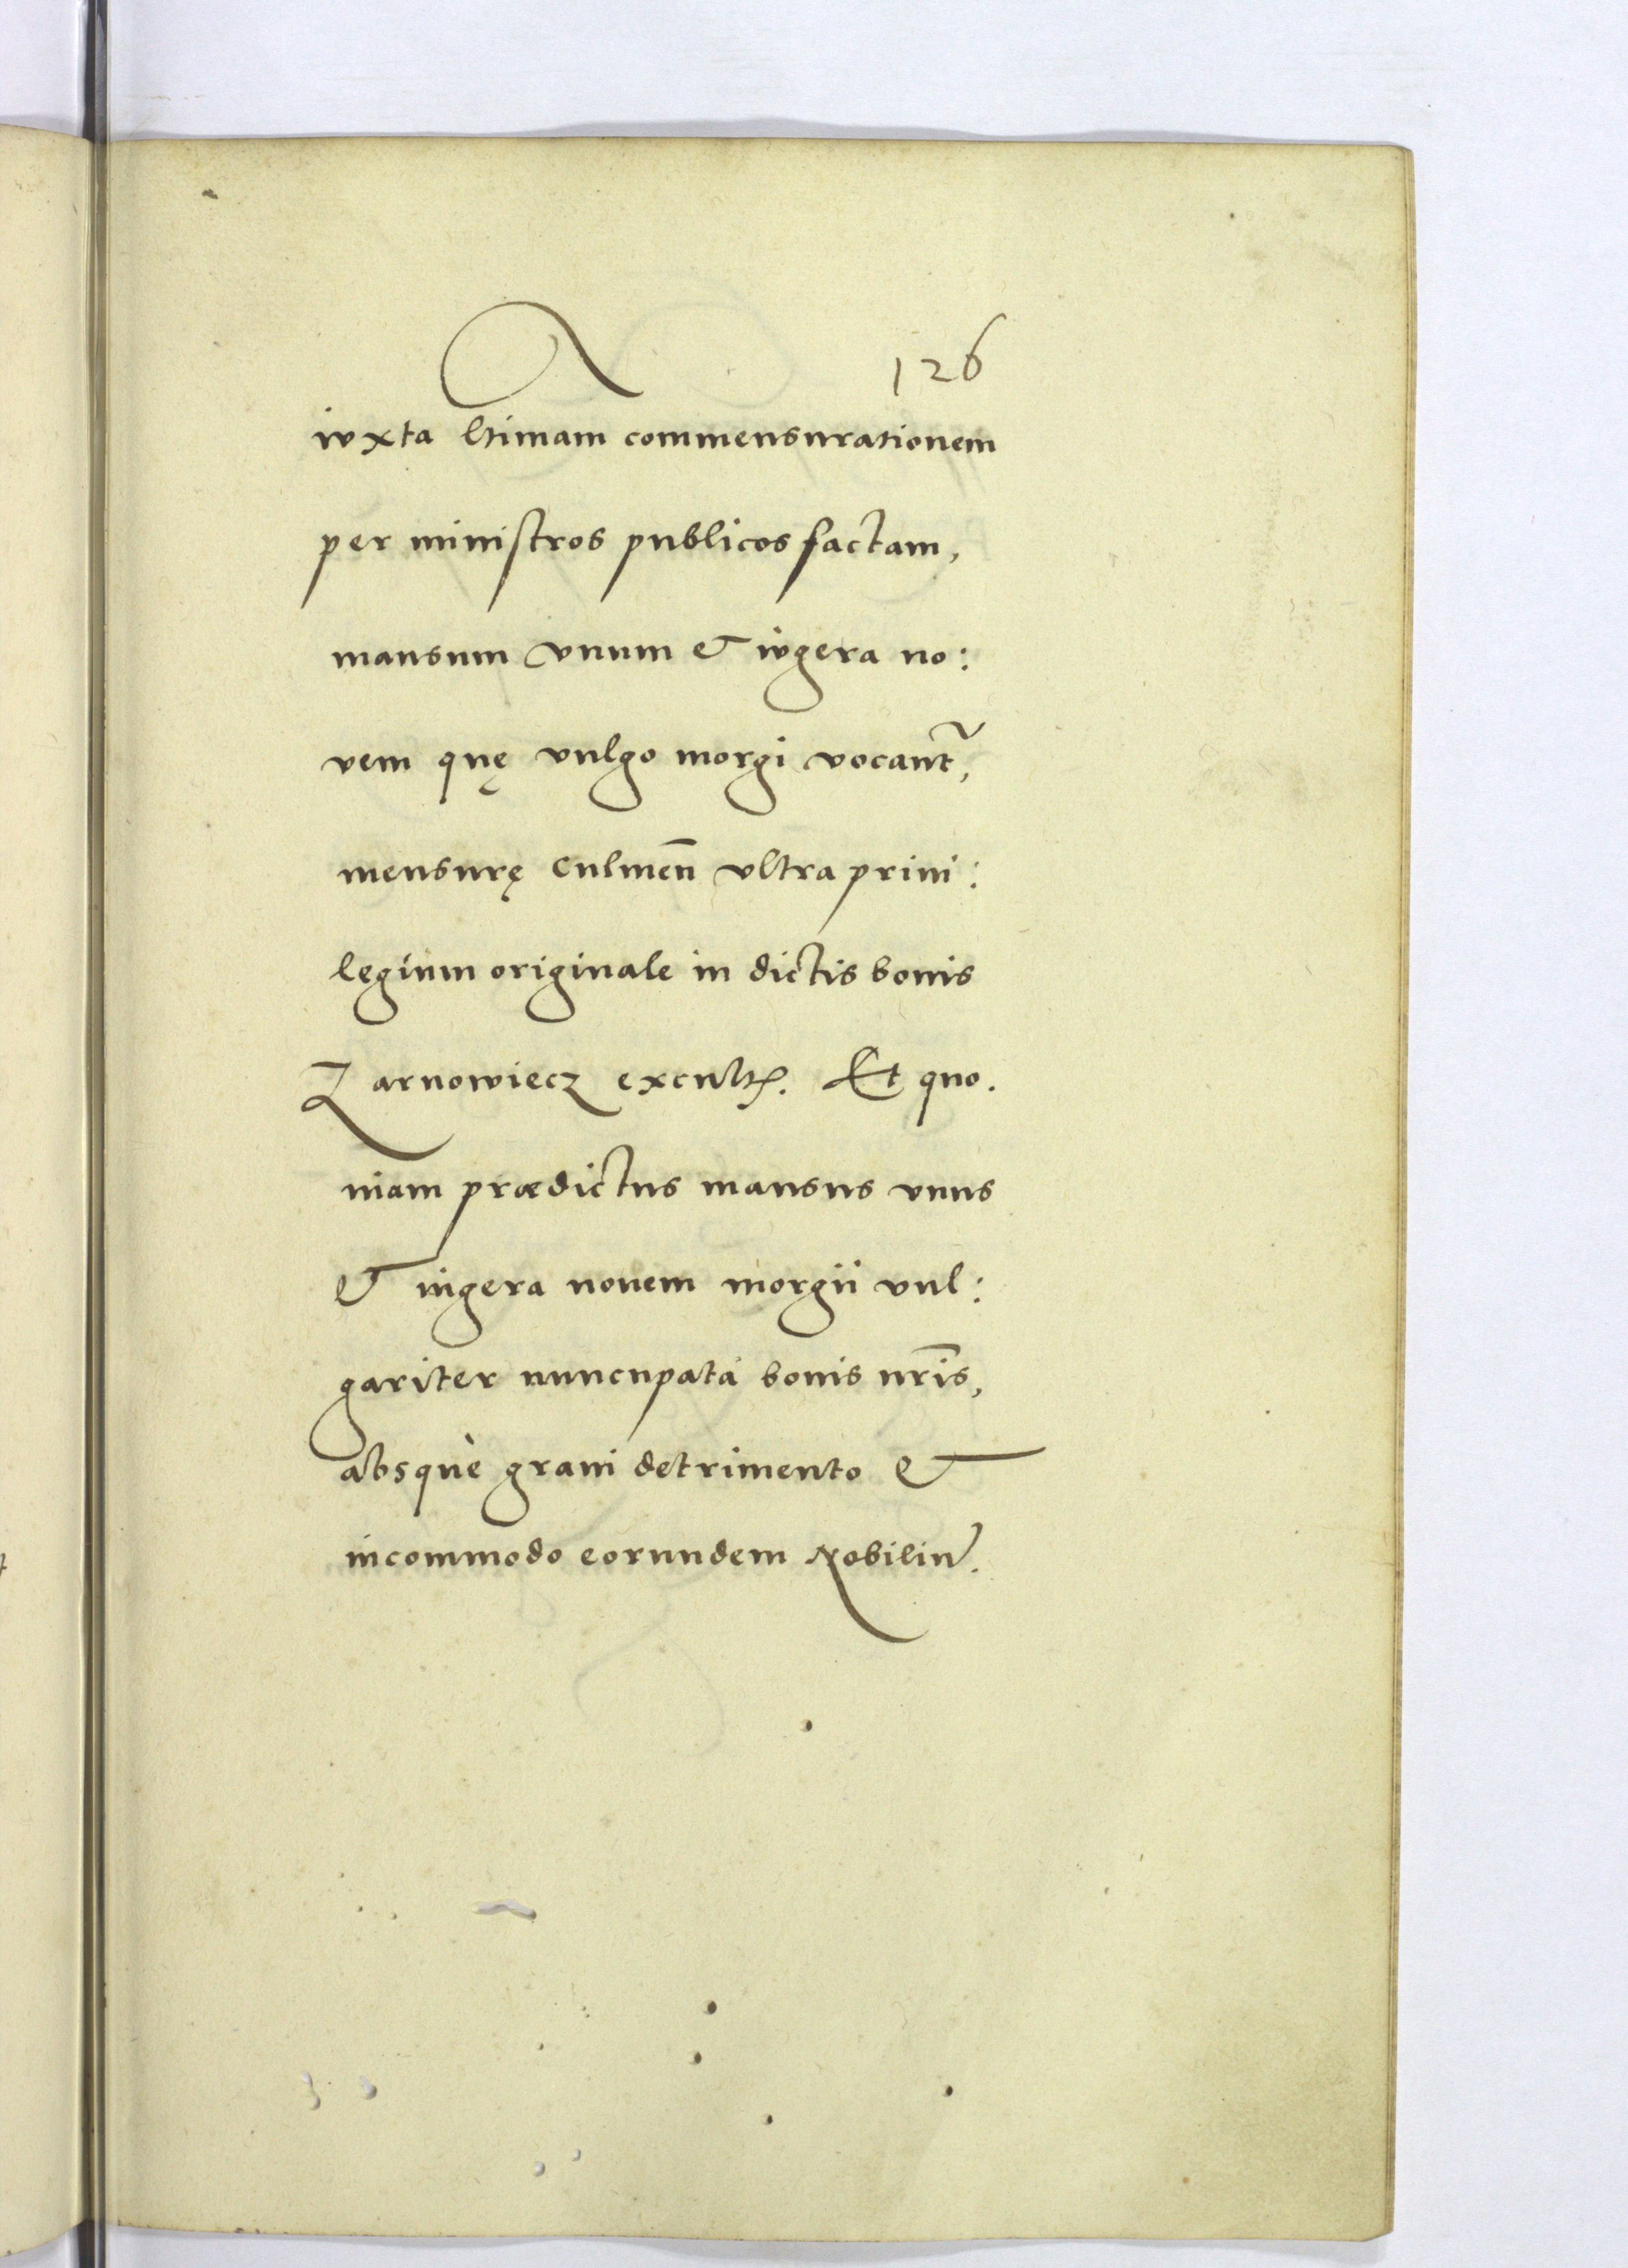 126
iuxta vltimam commensurationem
per ministros publicos factam,
mansum vnum & iugera no:
vem quę vulgo morgi vocant᷑,
mensurę culmen̄ vltra priui:
legium originale in dictis bonis
Zarnowiecz excult. Et quo.
niam prædictus mansus vnus
& iugera nouem morgii vul:
gariter nuncupata bonis nr̄is,
absquè graui detrimento &
incommodo eorundem Nobiliū.